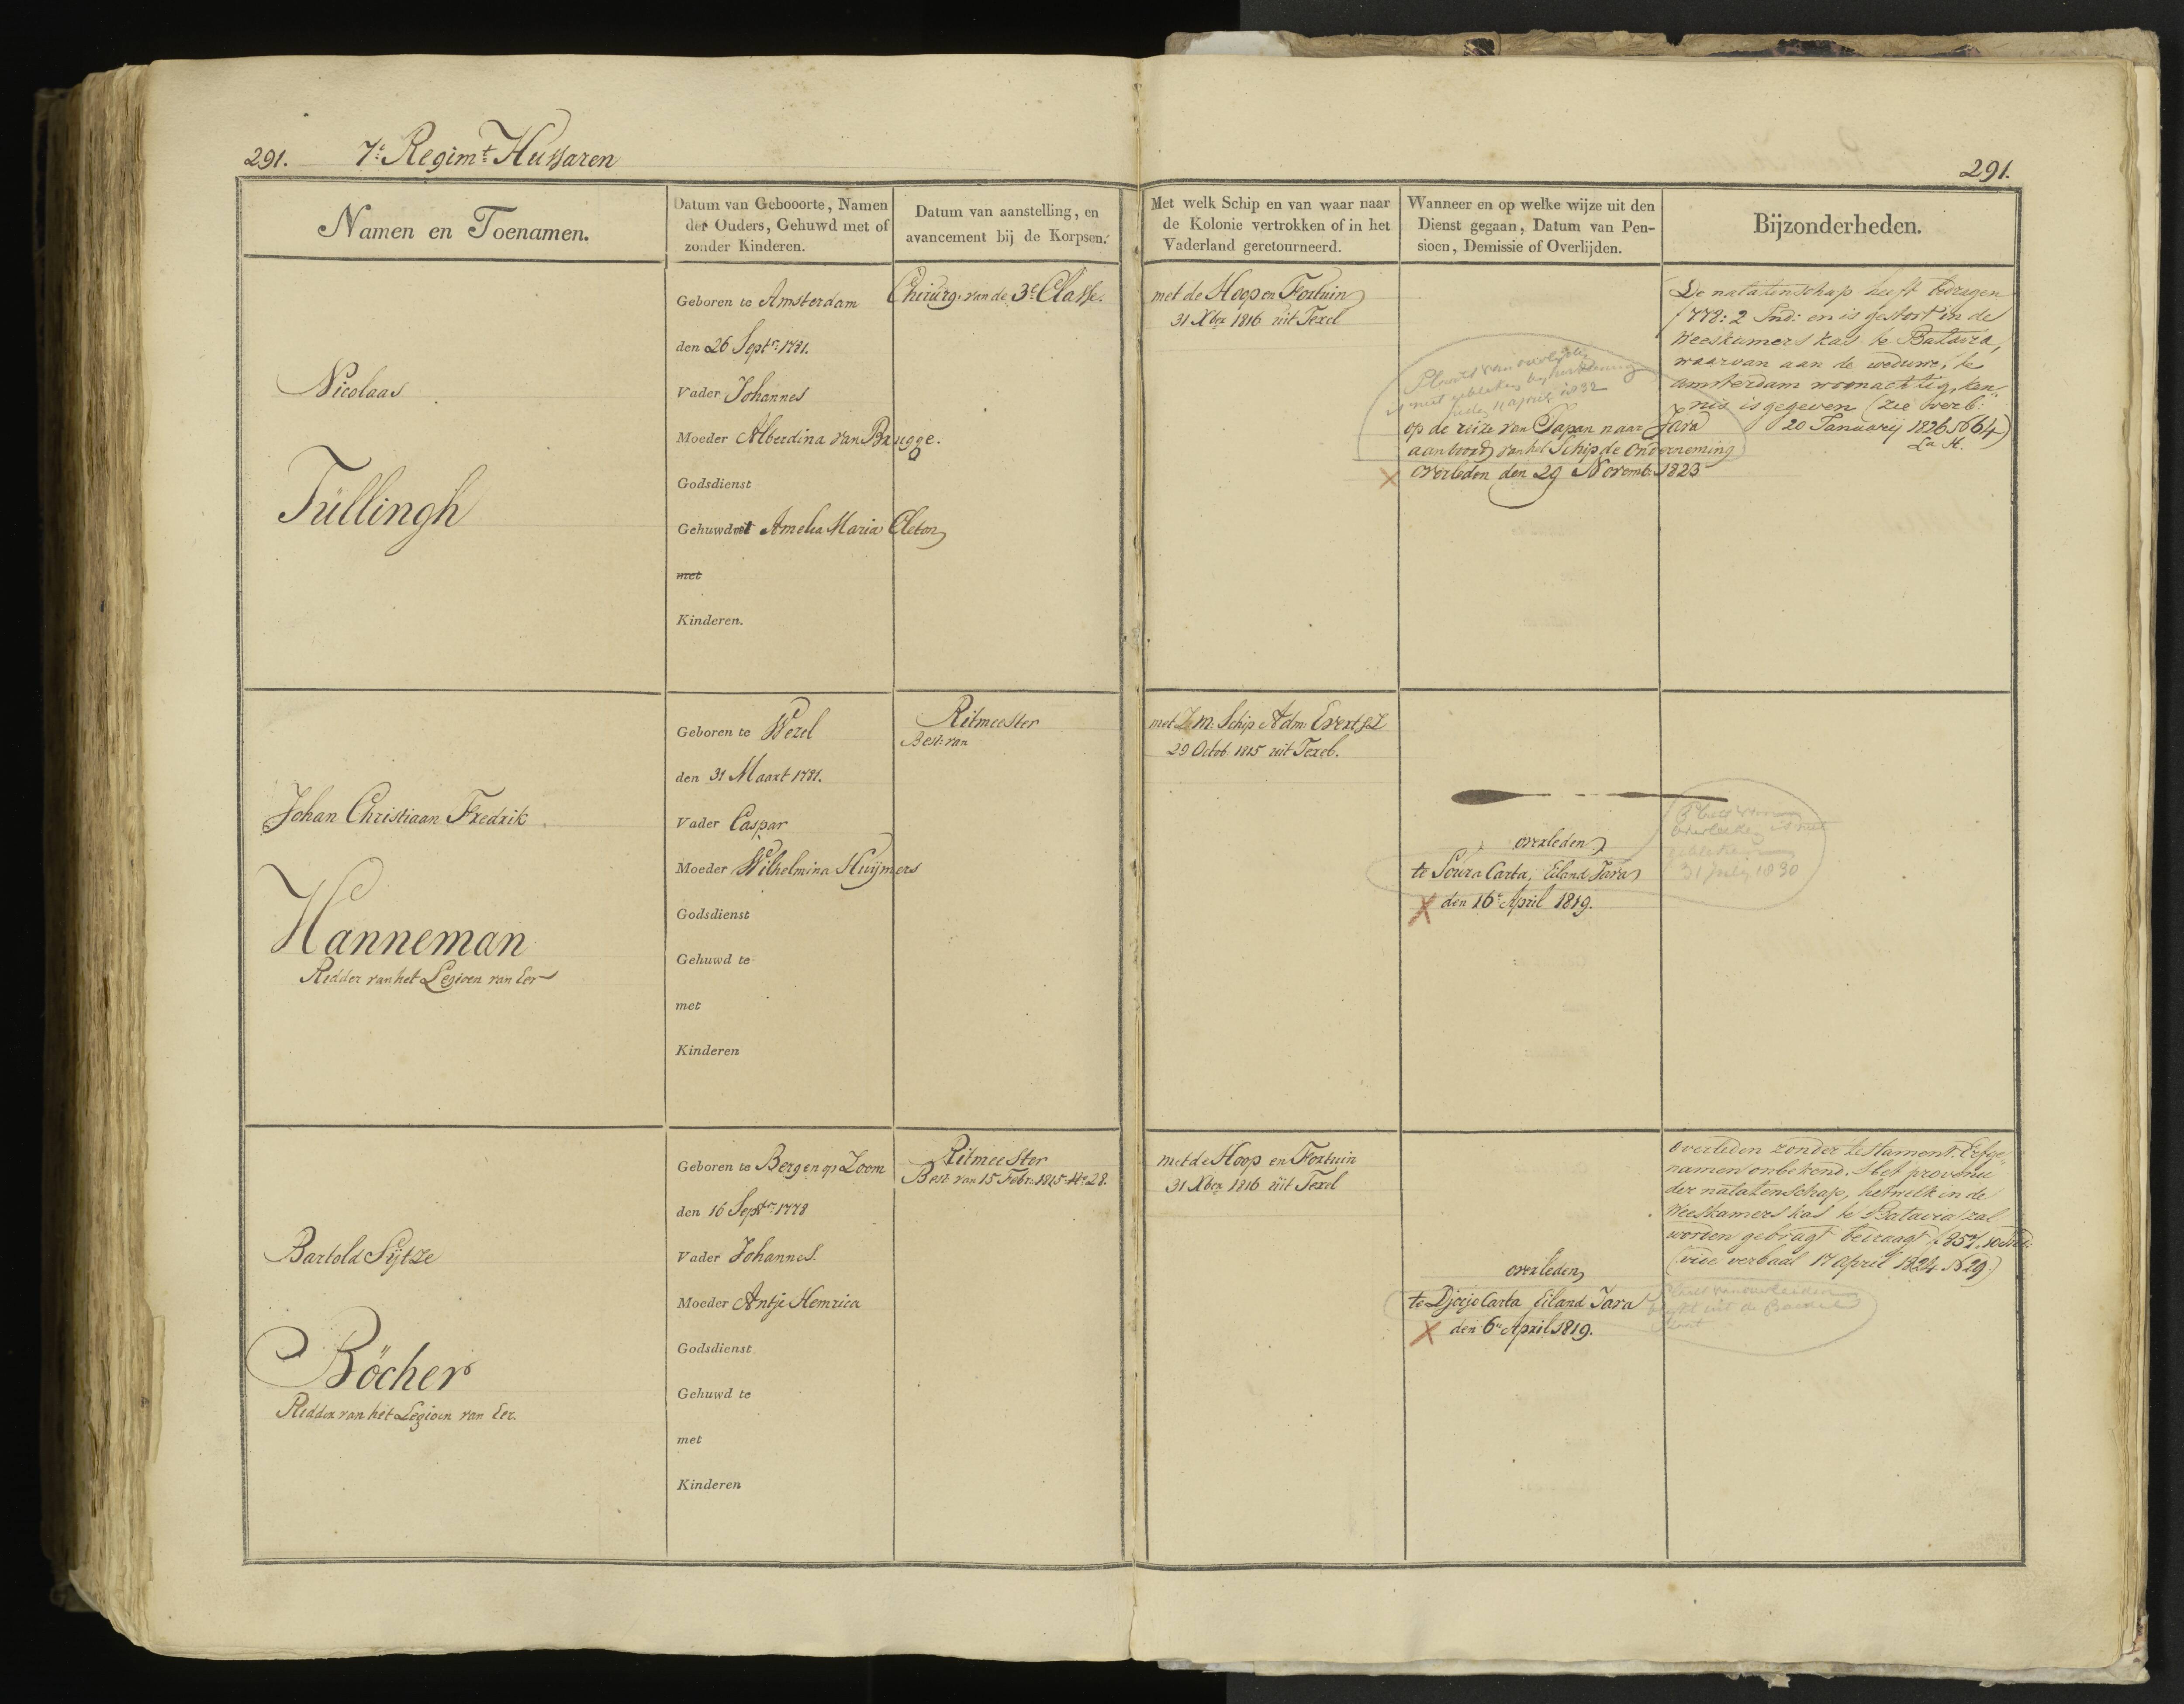 291. 7e Regimt Hussaren
291.
Namen en Toenamen.
Datum van Gebooorte, Namen
der Ouders, Gehuwd met of
zonder Kinderen.
Datum van aanstelling, en
avancement bij de Korpsen.
Met welk Schip en van waar naar
de Kolonie vertrokken of in het
Vaderland geretourneerd.
Wanneer en op welke wijze uit den
Dienst gegaan, Datum van Pen-
sioen, Demissie of Overlijden.
Bijzonderheden.
Nicolaas
Tüllingh
Geboren te Amsterdam
den 26 Septr. 1781.
Vader Johannes
Moeder Alberdina van Brugge.
Godsdienst
Gehuwd met Amelia Maria Cleton
met
Kinderen.
Chirurg. van de 3e Classe.
met de Hoop en Fortuin
31 Xber 1816 uit Texel
Plaats van overlijden
is niet gebleken bij
11 april 1832
op de reize van Japan naar Java
aan boord van het Schip de Onderneming
overleden den 29 Novemb. 1823
De nalatenschap heeft bedragen
f 778: 2 Ind: en is gestort in de
Weeskamers kas te Batavia,
waarvan aan de weduwe, te
amsterdam woonachtig, ken„
nis is gegeven (zie verb:
20 January 1826 No 64)
La H.
Johan Christiaan Fredrik
Hanneman
Ridder van het Legioen van Eer
Geboren te Wezel
den 31 Maart 1781.
Vader Caspar
Moeder Wilhelmina Huijmers
Godsdienst
Gehuwd te
met
Kinderen
Ritmeester
Best: van
met Z. M. Schip Adm: Evertsz
29 Octob. 1815 uit Texel.
overleden
te Soura Carta, Eiland Java
den 16e April 1819.
Plaats van
overleden is niet
gebleken
31 July 1830
Bartold Sijtze
Böcher
Ridder van het Legioen van Eer.
Geboren te Bergen op Zoom
den 16 Septr. 1778
Vader Johannes.
Moeder Antje Hemrica
Godsdienst
Gehuwd te
met
Kinderen
Ritmeester
Best: van 15 Febr. 1815 No 28.
met de Hoop en Fortuin
31 Xber 1816 uit Texel
overleden
te Djocjo Carta Eiland Java
den 6e April 1819.
overleden zonder testament. Erfge„
namen onbekend. Het provenu
der nalatenschap, hetwelk in de
Weeskamers kas te Batavia zal
worden gebragt bedraagt
(vide verbaal 17 april 1824 No 29.)
Plaats van overleiden
blijkt uit de